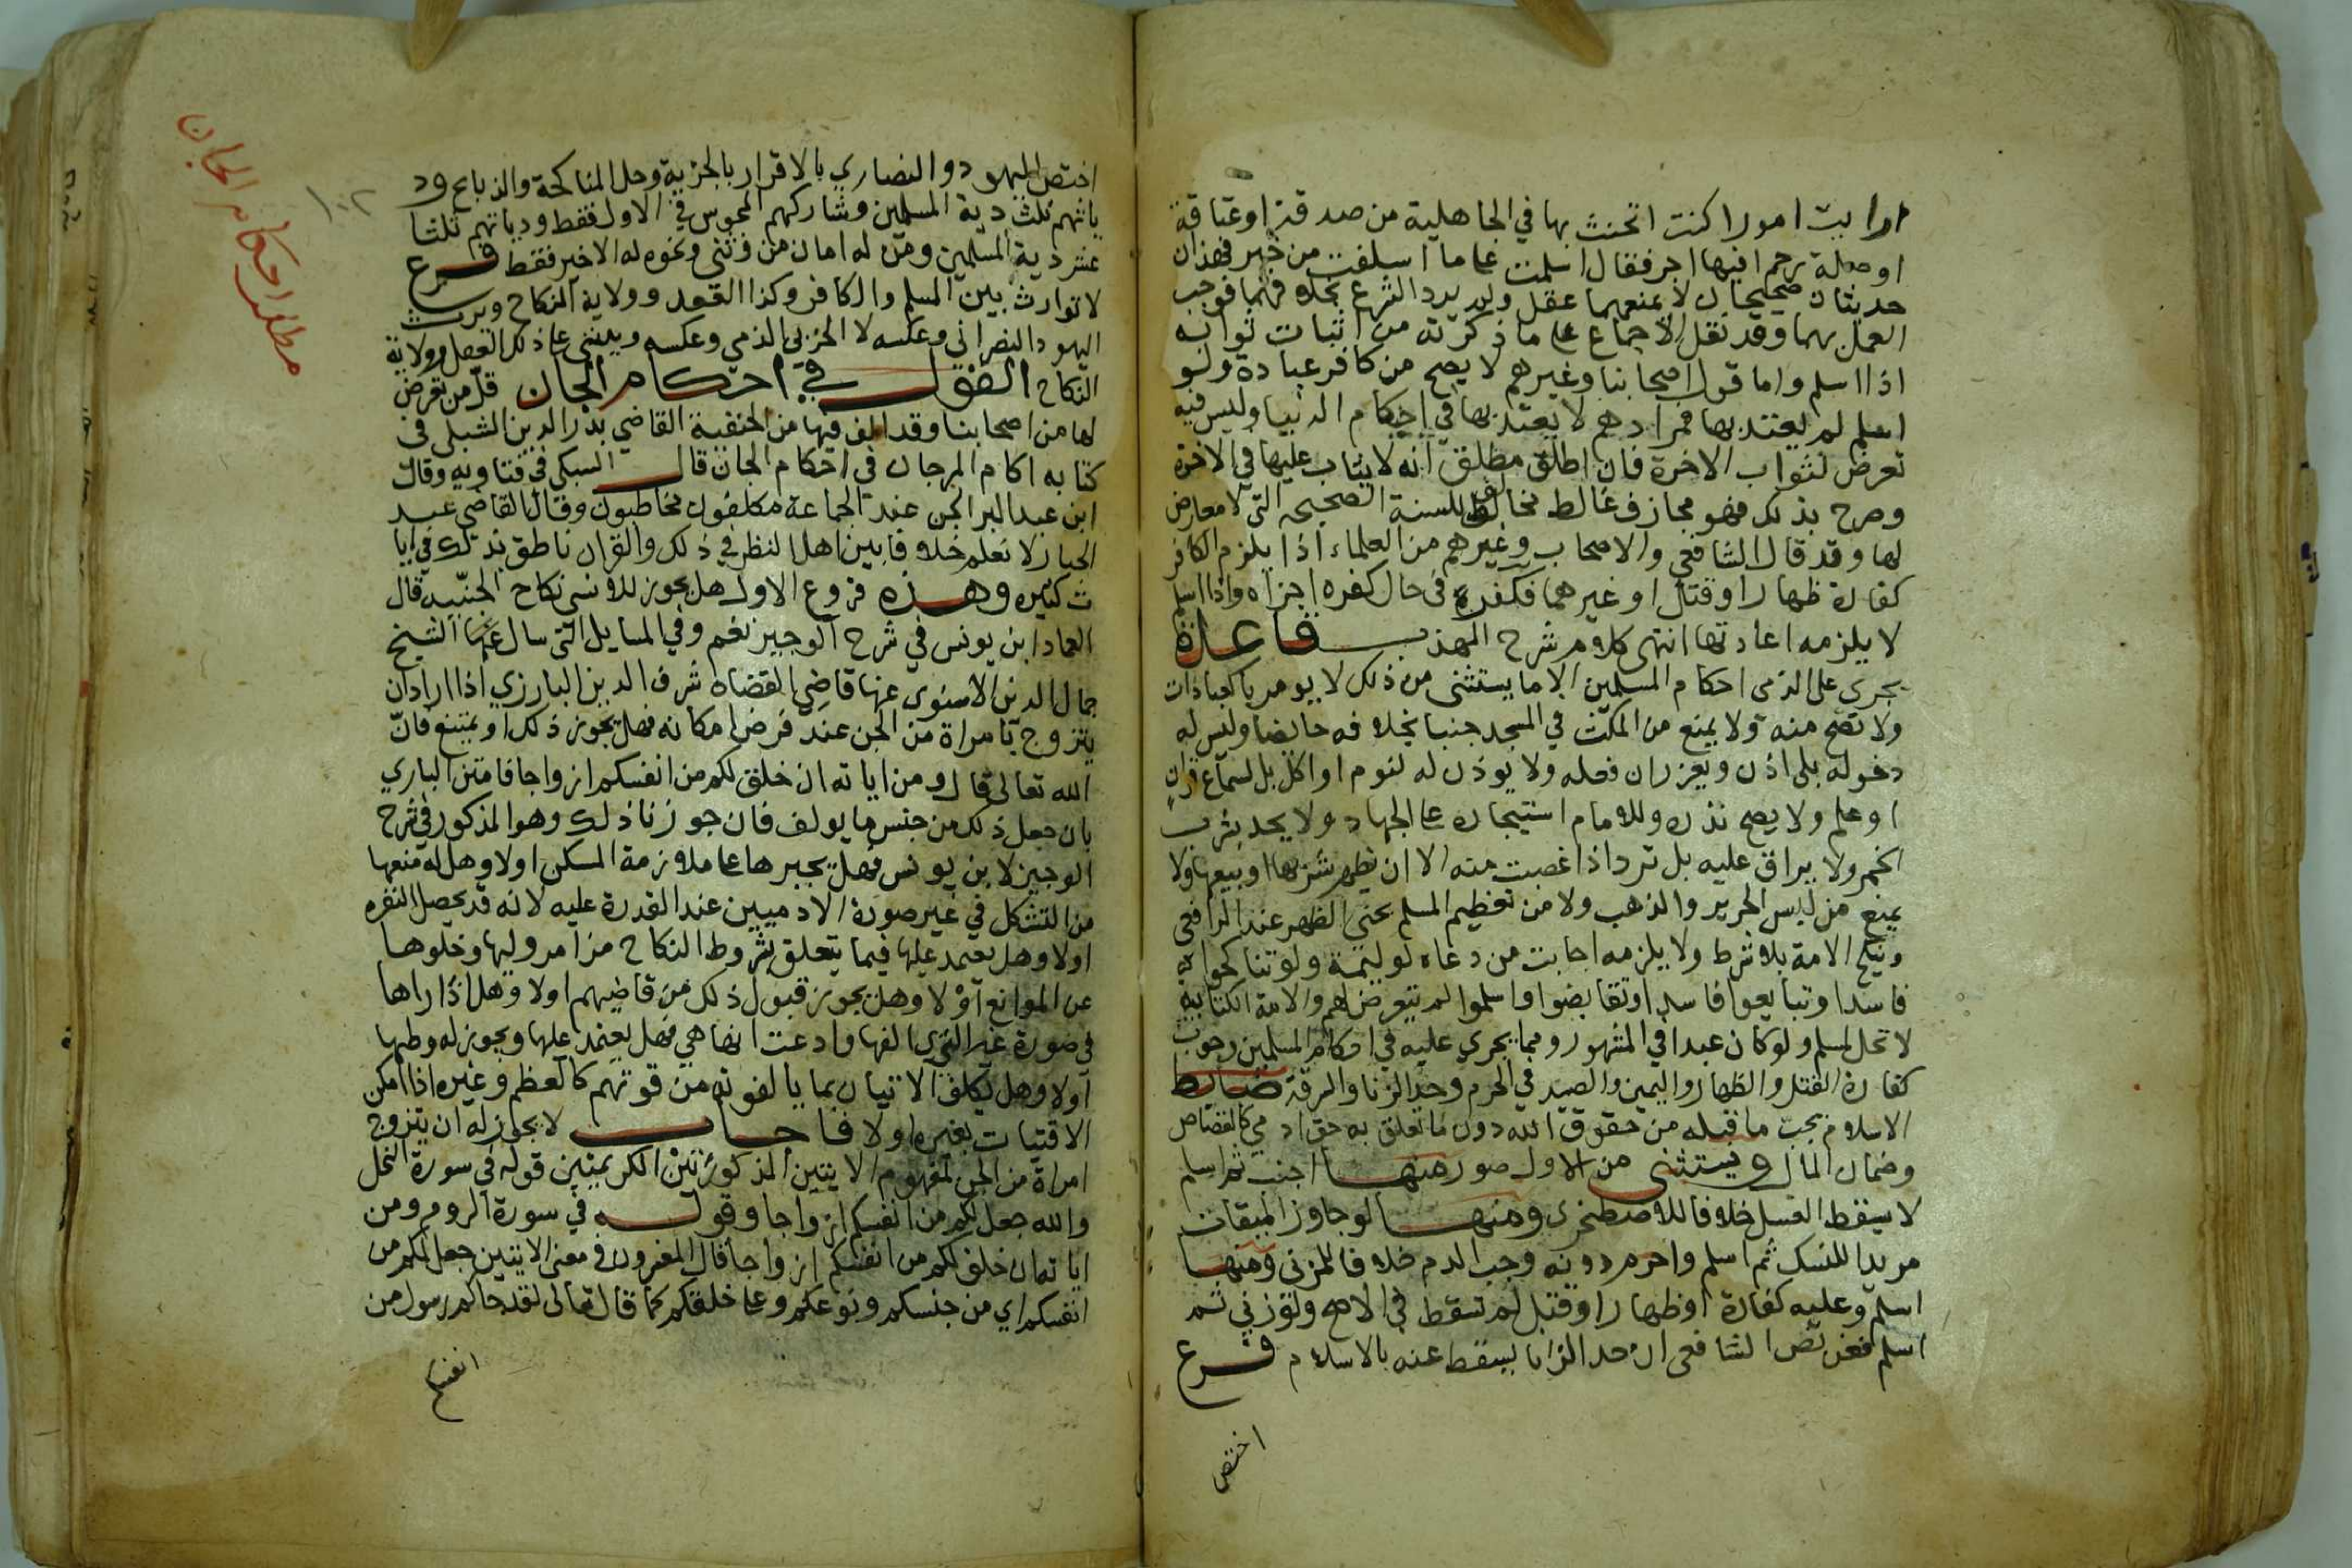 ارايت امورا كنت اتحنث بها في الجاهلية من صدقة او عتاقة
او صلة رحم افيها اجر فقال اسلمت على ما اسلفت من خير فهذان
حديثان صحيحان لا يمنعهما عقل ولم يرد الشرع بخلافهما فوجب
العمل بهما وقد نقل الاجماع على ما ذكرته من اثبات ثوابه
اذا اسلم واما قول اصحابنا وغيرهم لا يصح من كافر عبادة ولو
اسلم لم يعتد بها فمرادهم لا يعتد بها في احكام الدنيا وليس فيه
تعرض لثواب الاخرة فان اطلق مطلق انه لا يثاب عليها في الاخرة
وصرح بذلك فهو مجازف غالط مخالف للسنة الصحيحه التي لا معارض
لها وقد قال الشافعي والاصحاب وغيرهم من العلماء اذا يلزم الكافر
كفارة ظهار او قتل او غيرهما فكفر في حال كفره اجزاه واذا اسلم
لا يلزمه اعادتها انتهى كلام شرح المهذب قاعدة
يجري على الذمي احكام المسلمين الا ما يستثنى من ذلك لا يومر بالعبادات
ولا تصح منه ولا يمنع من المكث في المسجد جنبا بخلافه حايضا وليس له
دخوله بلى اذن ويعزر ان فعله ولا يوذن له لنوم او اكل بل لسماع قران
او علم ولا يصح نذره وللامام استيجاره على الجهاد ولا يحد بشرب
الخمر ولا يراق عليه بل ترد اذا غصبت منه الا ان يظهر شربها او بيعها ولا
يمنع من لبس الحرير والذهب ولا من تعظيم المسلم بحني الظهر عند الرافعي
وينكح الامة بلا شرط ولا يلزمه اجابت من دعاه لوليمة ولو تناكحوا
فاسدا او تبايعوا فاسدا وتقابضوا واسلموا لم نتعرض لهم والامة الكتابيه
لا تحل لمسلم ولو كان عبدا في المشهور ومما يجري عليه في احكام المسلمين وجوب
كفارة القتل والظهار واليمين والصيد في الحرم وحد الزنا والسرقة ضابط
الاسلام يجب ما قبله من حقوق الله دون ما تعلق به حق ادمي كالقصاص
وضمان المال ويستثنى من الاول صور منها اجنب ثم اسلم
لا يسقط الغسل خلافا للاصطخري ومنها لو جاوز الميقات
مريدا للنسك ثم اسلم واحرم دونه وجب الدم خلافا للمزني ومنها
اسلم وعليه كفارة او ظهار او قتل لم تسقط في الاصح ولو زني ثم
اسلم فعن نص الشافعي ان حد الزنا يسقط عنه بالاسلام فرع
اختص
مطلب احكام الجان
١٠٢
اختص اليهود والنصاري بالاقرار بالجزية وحل المناكحة والذبايح ود
ياتهم ثلث دية المسلمين وشاركهم المجوس في الاول فقط ودياتهم ثلثا
عشر دية المسلمين ومن له امان من وثني ونحوه له الاخير فقط فرع
لا توارث بين المسلم والكافر وكذا العقل وولاية النكاح ويرث
اليهود النصراني وعكسه لا الحربي الذمي وعكسه ويبتنى على ذلك العقل وولاية
النكاح القول في احكام الجان قل من تعرض
لها من اصحابنا وقد الف فيها من الحنفية القاضي بدر الدين الشبلي في
كتابه اكام المرجان في احكام الجان قال السبكي في فتاويه وقال
ابن عبد البر الجن عند الجماعة مكلفون مخاطبون وقال القاضي عبد
الجبار لا نعلم خلافا بين اهل النظر في ذلك والقران ناطق بذلك في ايا
ت كثيره وهذه فروع الاول هل يجوز للانسي نكاح الجنيه قال
العماد ابن يونس في شرح الوجيز نعم وفي المسايل التي سال عنها الشيخ
جمال الدين الاسنوي عنها قاضي القضاه شرف الدين البارزي اذا اراد ان
يتزوج بامراة من الجن عند فرض امكانه فهل يجوز ذلك او يمتنع فان
الله تعالى قال ومن اياته ان خلق لكم من انفسكم ازواجا فامتن الباري
بان جعل ذلك من جنس ما يولف فان جوزنا ذلك وهو المذكور في شرح
الوجيز لابن يونس فهل يجبرها على ملازمة المسكن اولا وهل له منعها
من التشكل في غير صورة الادميين عند القدرة عليه لانه قد يحصل النفره
اولا وهل يعتمد عليها فيما يتعلق بشروط النكاح من امر وليها وخلوها
عن الموانع اولا وهل يجوز قبول ذلك من قاضيهم اولا وهل اذا راها
في صورة غير التي الفها وادعت انها هي فهل يعتمد عليها ويجوز له وطيها
اولا وهل يكلف الاتيان بما يالفونه من قوتهم كالعظم وغيره اذا امكن
الاقتيات بغيره اولا فاجاب لا يجوز له ان يتزوج
امراة من الجن لمفهوم الايتين المذكورتين الكريمتين قوله في سورة النحل
والله جعل لكم من انفسكم ازواجا وقوله في سورة الروم ومن
اياته ان خلق لكم من انفسكم ازواجا قال المفسرون في معنى الايتين جعل لكم من
انفسكم اي من جنسكم ونوعكم وعلى خلقكم كما قال تعالى لقد جاكم رسول من
انفسكم